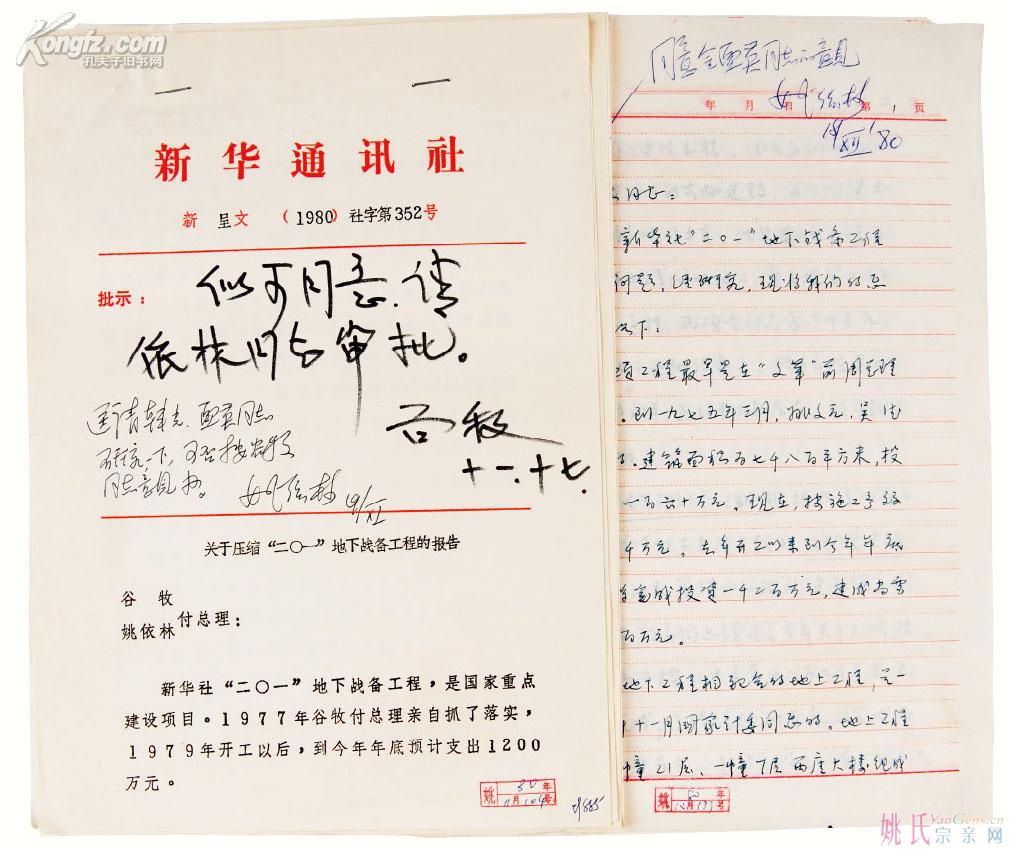 Kongfz.com
孔夫子旧书网
新华通讯社
新呈文（1980）社字第352号
批示：
似可同意、请
依林同志审批。
谷牧
十一.十七.
送请韩光、配英同志
研究一下，可否按谷牧
同志意见办。
姚依林
关于压缩“二〇一”地下战备工程的报告
谷牧
姚依林付总理：
新华社“二〇一”地下战备工程，是国家重点
建设项目。1977年谷牧付总理亲自抓了落实，
1979年开工以后，到今年年底预计支出1200
万元。
姚 80年
11月104号
同意金配英同志的意见
姚依林
年 月 日 第1页
同志：
新华社“二〇一”地下战备工程
问题，经研究，现将我们的意见
如下：
项工程最早是在“文革”前周总理
到一九七五年三月，
建筑面积百七千八百平方米，投
一百六十万元。现在，按施工予算
千万元。去年开工以来到今年年底
完成投资一千二百万元，建成尚需
百万元。
地下工程相配合的地上工程，是一
十一月国家计委同意的。地上工程
幢21层、一幢7层两座大楼组成
姚 80年
12月
姚氏宗亲网
YaoGens.cn